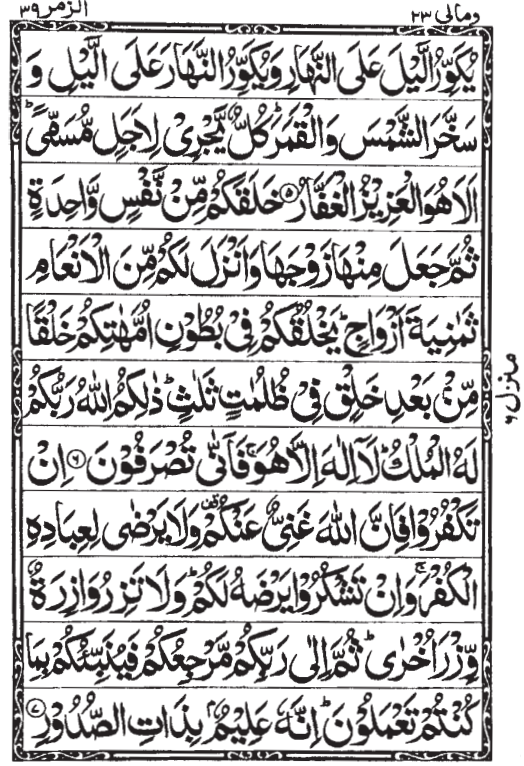 ومالی ۲۳
الزمر ۳۹
يُكَوِّرُ الَّيْلَ عَلَى النَّهَارِ وَيُكَوِّرُ النَّهَارَ عَلَى الَّيْلِ وَ
سَخَّرَ الشَّمْسَ وَالْقَمَرَ ؕ كُلٌّ يَّجْرِىْ لِاَجَلٍ مُّسَمًّى ؕ
اَلَا هُوَ الْعَزِيْزُ الْغَفَّارُ ۵ خَلَقَكُمْ مِّنْ نَّفْسٍ وَّاحِدَةٍ
ثُمَّ جَعَلَ مِنْهَا زَوْجَهَا وَاَنْزَلَ لَكُمْ مِّنَ الْاَنْعَامِ
ثَمٰنِيَةَ اَزْوَاجٍ ؕ يَخْلُقُكُمْ فِىْ بُطُوْنِ اُمَّهٰتِكُمْ خَلْقًا
مِّنْۢ بَعْدِ خَلْقٍ فِىْ ظُلُمٰتٍ ثَلٰثٍ ؕ ذٰلِكُمُ اللّٰهُ رَبُّكُمْ
لَهُ الْمُلْكُ ؕ لَاۤ اِلٰهَ اِلَّا هُوَ ۚ فَاَنّٰى تُصْرَفُوْنَ ۶ اِنْ
تَكْفُرُوْا فَاِنَّ اللّٰهَ غَنِىٌّ عَنْكُمْ ۟ وَلَا يَرْضٰى لِعِبَادِهِ
الْكُفْرَ ۚ وَاِنْ تَشْكُرُوْا يَرْضَهُ لَكُمْ ؕ وَلَا تَزِرُ وَازِرَةٌ
وِّزْرَ اُخْرٰى ؕ ثُمَّ اِلٰى رَبِّكُمْ مَّرْجِعُكُمْ فَيُنَبِّئُكُمْ بِمَا
كُنْتُمْ تَعْمَلُوْنَ ؕ اِنَّهٗ عَلِيْمٌۢ بِذَاتِ الصُّدُوْرِ ۷
منزل ۶